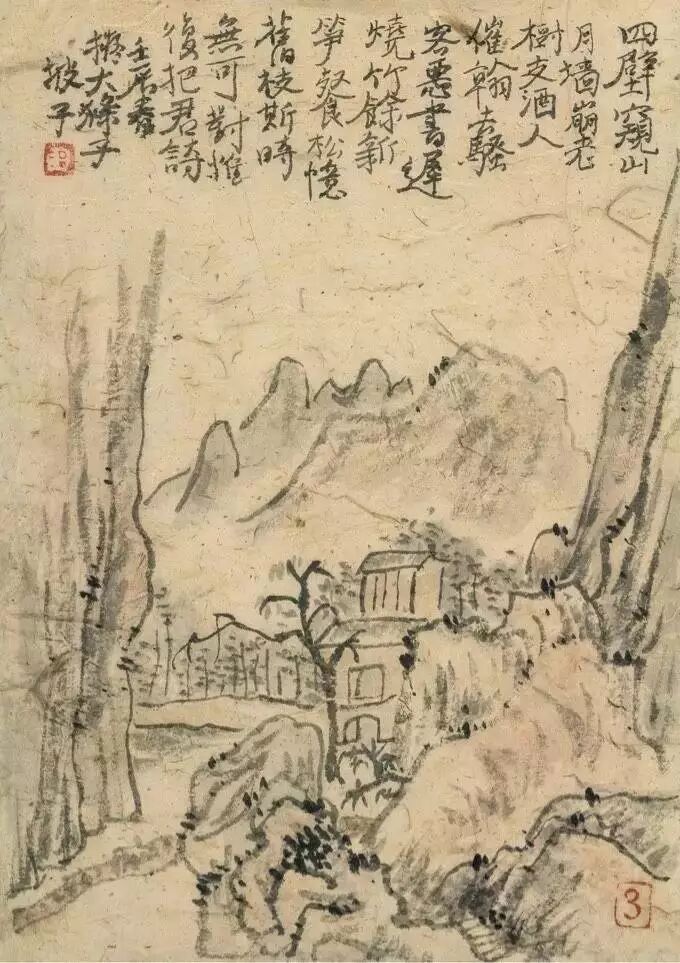 四壁窺山
月墻崩老
樹支酒人
催翰去騷
客惡書遲
燒竹餘新
笋餐松憶
舊枝斯時
無可對惟
復把君詩
壬辰春
擬大滌子
3